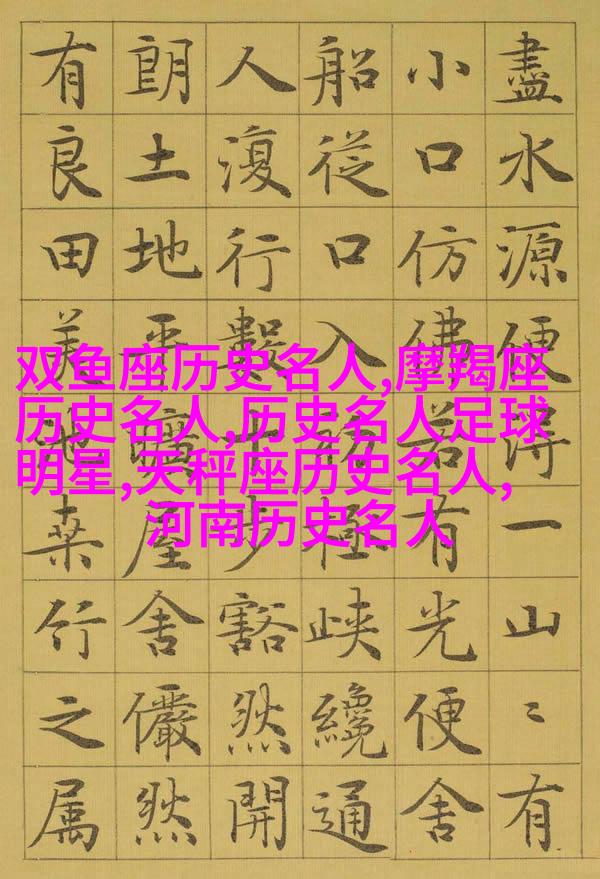 盡水源便得一山〻有
小口仿佛若有光便舍
船從口入初極峽纔通
人復行數十步豁然開
朗土地平曠屋舍儼然
有良田美池桑竹之属
双鱼座历史名人,摩羯座
历史名人,历史名人足球
明星,天秤座历史名人,
河南历史名人